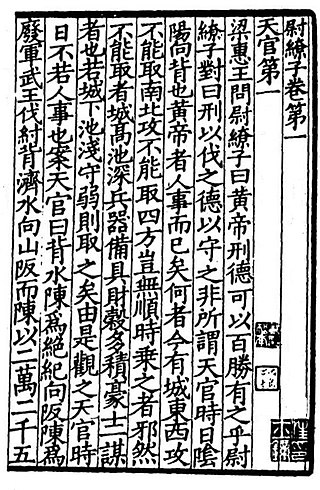 尉繚子卷第一
天官第一
梁惠王問尉繚子曰黄帝刑德可以百勝有之乎尉
繚子對曰刑以伐之德以守之非所謂天官時日陰
陽向背也黄帝者人事而已矣何者今有城東西攻
不能取南北攻不能取四方豈無順時乘之者邪然
不能取者城髙池深兵器備具財穀多積豪士一謀
者也若城下池淺守弱則取之矣由是觀之天官時
日不若人事也案天官曰背水陳爲絶紀向阪陳爲
廢軍武王伐紂背濟水向山阪而陳以二萬二千五